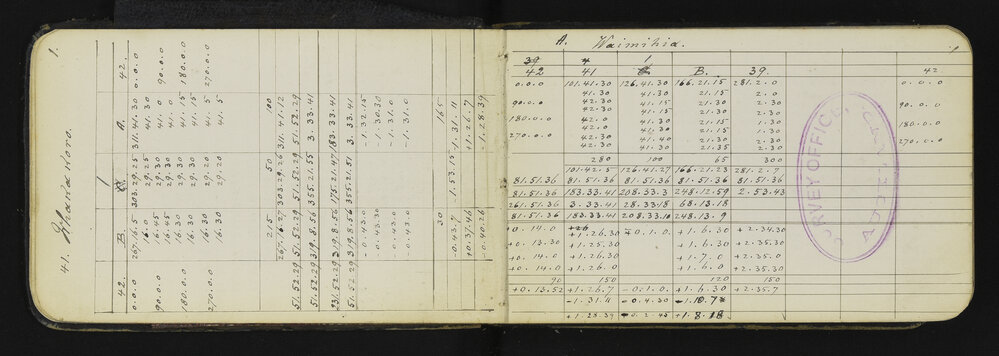 41. 1.
42. B. 1 A. 42.
0.0.0 267.16.5 303.29.25 311.41.30 0.0.0
16.0 29.25 41.30
90.0.0 16.45 29.30 41.0 90.0.0
16.45 29.30 41.0
180.0.0 16.30 29.30 41.0 180.0.0
16.30 29.30 41.5
270.0.0 16.30 29.20 41.5 270.0.0
16.30 29.20 41.5
215 50 100
267.16.27 303.29.26 311.41.12
51.52.29 51.52.29 51.52.29 51.52.29
51.52.29 319.8.56 355.21.55 3.33.41
319.8.56 175.21.47 183.33.41
51.52.29 319.8.56 355.21.51 3.33.41
-0.43.0 -1.32.15
-0.43.30 -1.30.30
-0.43.0 -1.31.0
-0.43.0 -1.31.0
30 165
-0.43.7 -1.53.15 -1.31.11
+0.37.46 +1.26.7
-1.28.39
A. Waimihia. 1
39 4 1
42 41 B. 39. 42
0.0.0 101.41.30 126.41.30 166.21.15 281.2.0 0.0.0
41.30 41.30 21.15 2.0
90.0.0 42.30 41.15 21.15 2.30 90.0.0
42.30 41.15 21.30 2.30
180.0.0 42.0 41.30 21.15 1.30 180.0.0
42.0 41.30 21.15 1.30
270.0.0 42.30 41.40 21.30 2.30 270.0.0
42.30 41.30 21.35 2.30
280 100 65 300
101.42.5 126.41.27 166.21.23 281.2.7
81.51.36 81.51.36 81.51.36 81.51.36 81.51.36
81.51.36 183.33.41 208.33.3 248.12.59 2.53.43
261.51.36 3.33.41 28.33.18 68.13.18
81.51.36 183.33.41 208.33.10 248.13.9
+0.14.0 +1.26.30 -0.1.0. +1.6.30 +2.34.30
+0.13.30 +1.25.30 +2.35.30
+0.14.0 +1.26.30 +1.7.0 +2.35.0
+0.14.0 +1.26.0 +1.6.0 +2.35.30
90 150 120 150
+0.13.52 +1.26.7 -0.1.0. +1.6.30 +2.35.7
-1.31.11 -0.4.30
+1.28.39 +1.8.18
SURVEY OFFICE,
AUCKLAND